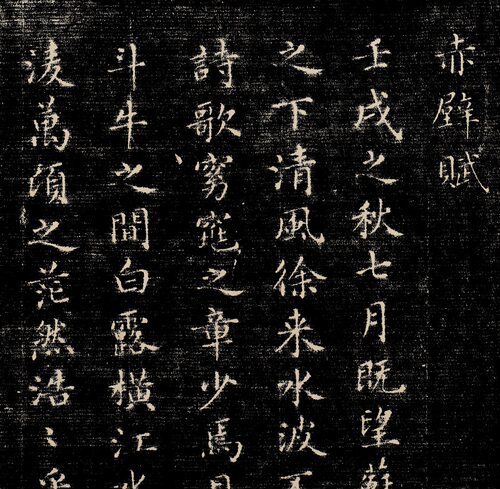 赤壁賦
壬戌之秋七月既望蘇
之下清風徐来水波不
詩歌窈窕之章少焉月
斗牛之間白露橫江水
淩萬頃之茫然浩〻乎